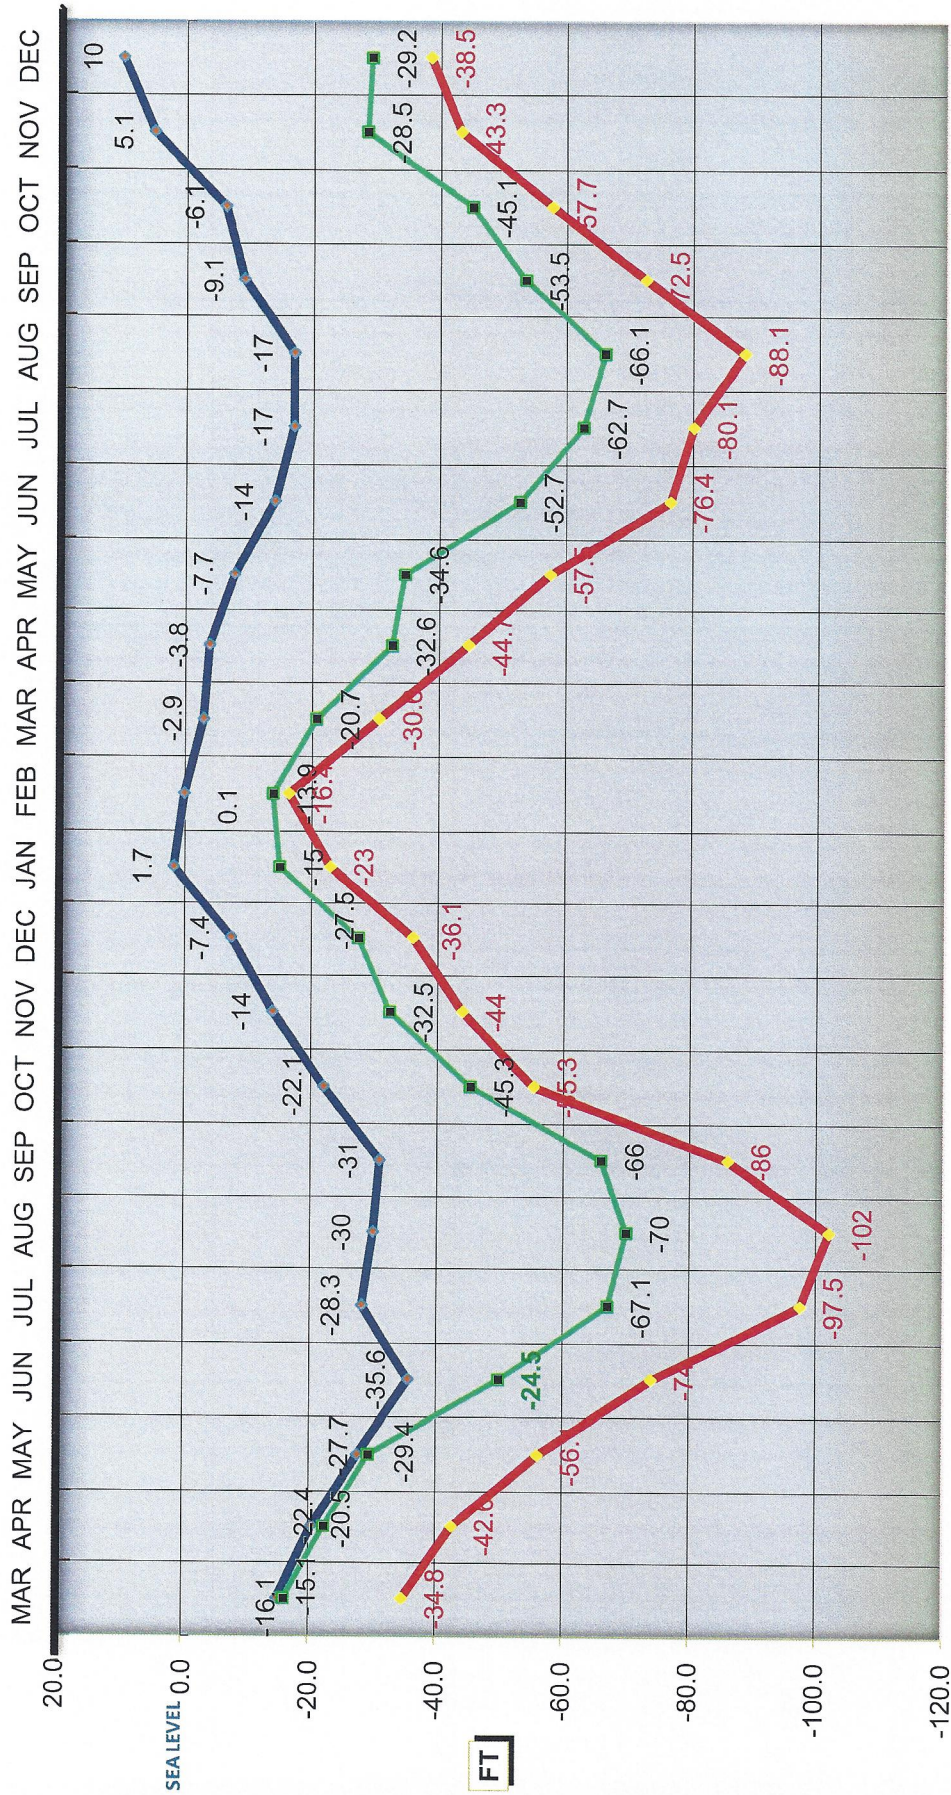 MAR APR MAY JUN JUL AUG SEP OCT NOV DEC JAN FEB MAR APR MAY JUN JUL AUG SEP OCT NOV DEC
20.0
SEA LEVEL 0.0
-20.0
-40.0
-60.0
-80.0
-100.0
-120.0
FT
-16.1 -22.4 -27.7 -35.6 -28.3 -30 -31 -22.1 -14 -7.4 1.7 0.1 -2.9 -3.8 -7.7 -14 -17 -17 -9.1 -6.1 5.1 10
-15.1 -20.5 -29.4 -24.5 -67.1 -70 -66 -45.3 -32.5 -27.5 -15 -13.9 -20.7 -32.6 -34.6 -52.7 -62.7 -66.1 -53.5 -45.1 -28.5 -29.2
-34.8 -42.6 -56.1 -74 -97.5 -102 -86 -55.3 -44 -36.1 -23 -16.4 -30.6 -44.7 -57.5 -76.4 -80.1 -88.1 -72.5 -57.7 -43.3 -38.5